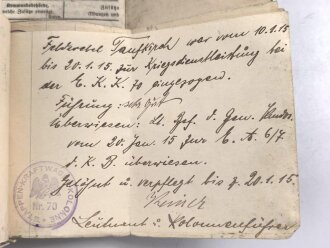 Kommandobehörde,
welche Zusätze einträgt
Zusätze
Feldwebel Taufkirch war vom 10.1.15
bis 20.1.15 zur Kriegsdienstleistung bei
der E.K.K. 70 eingezogen.
Führung: sehr gut
Überwiesen: Lt. Bef. d. Gen.
vom 20. Jan. 15 zur E.A. 6/7.
d. K.B. überwiesen.
Gelöhnt u. verpflegt bis z. 20.1.15.
Leutnant u. Kolonnenführer
Nr. 70